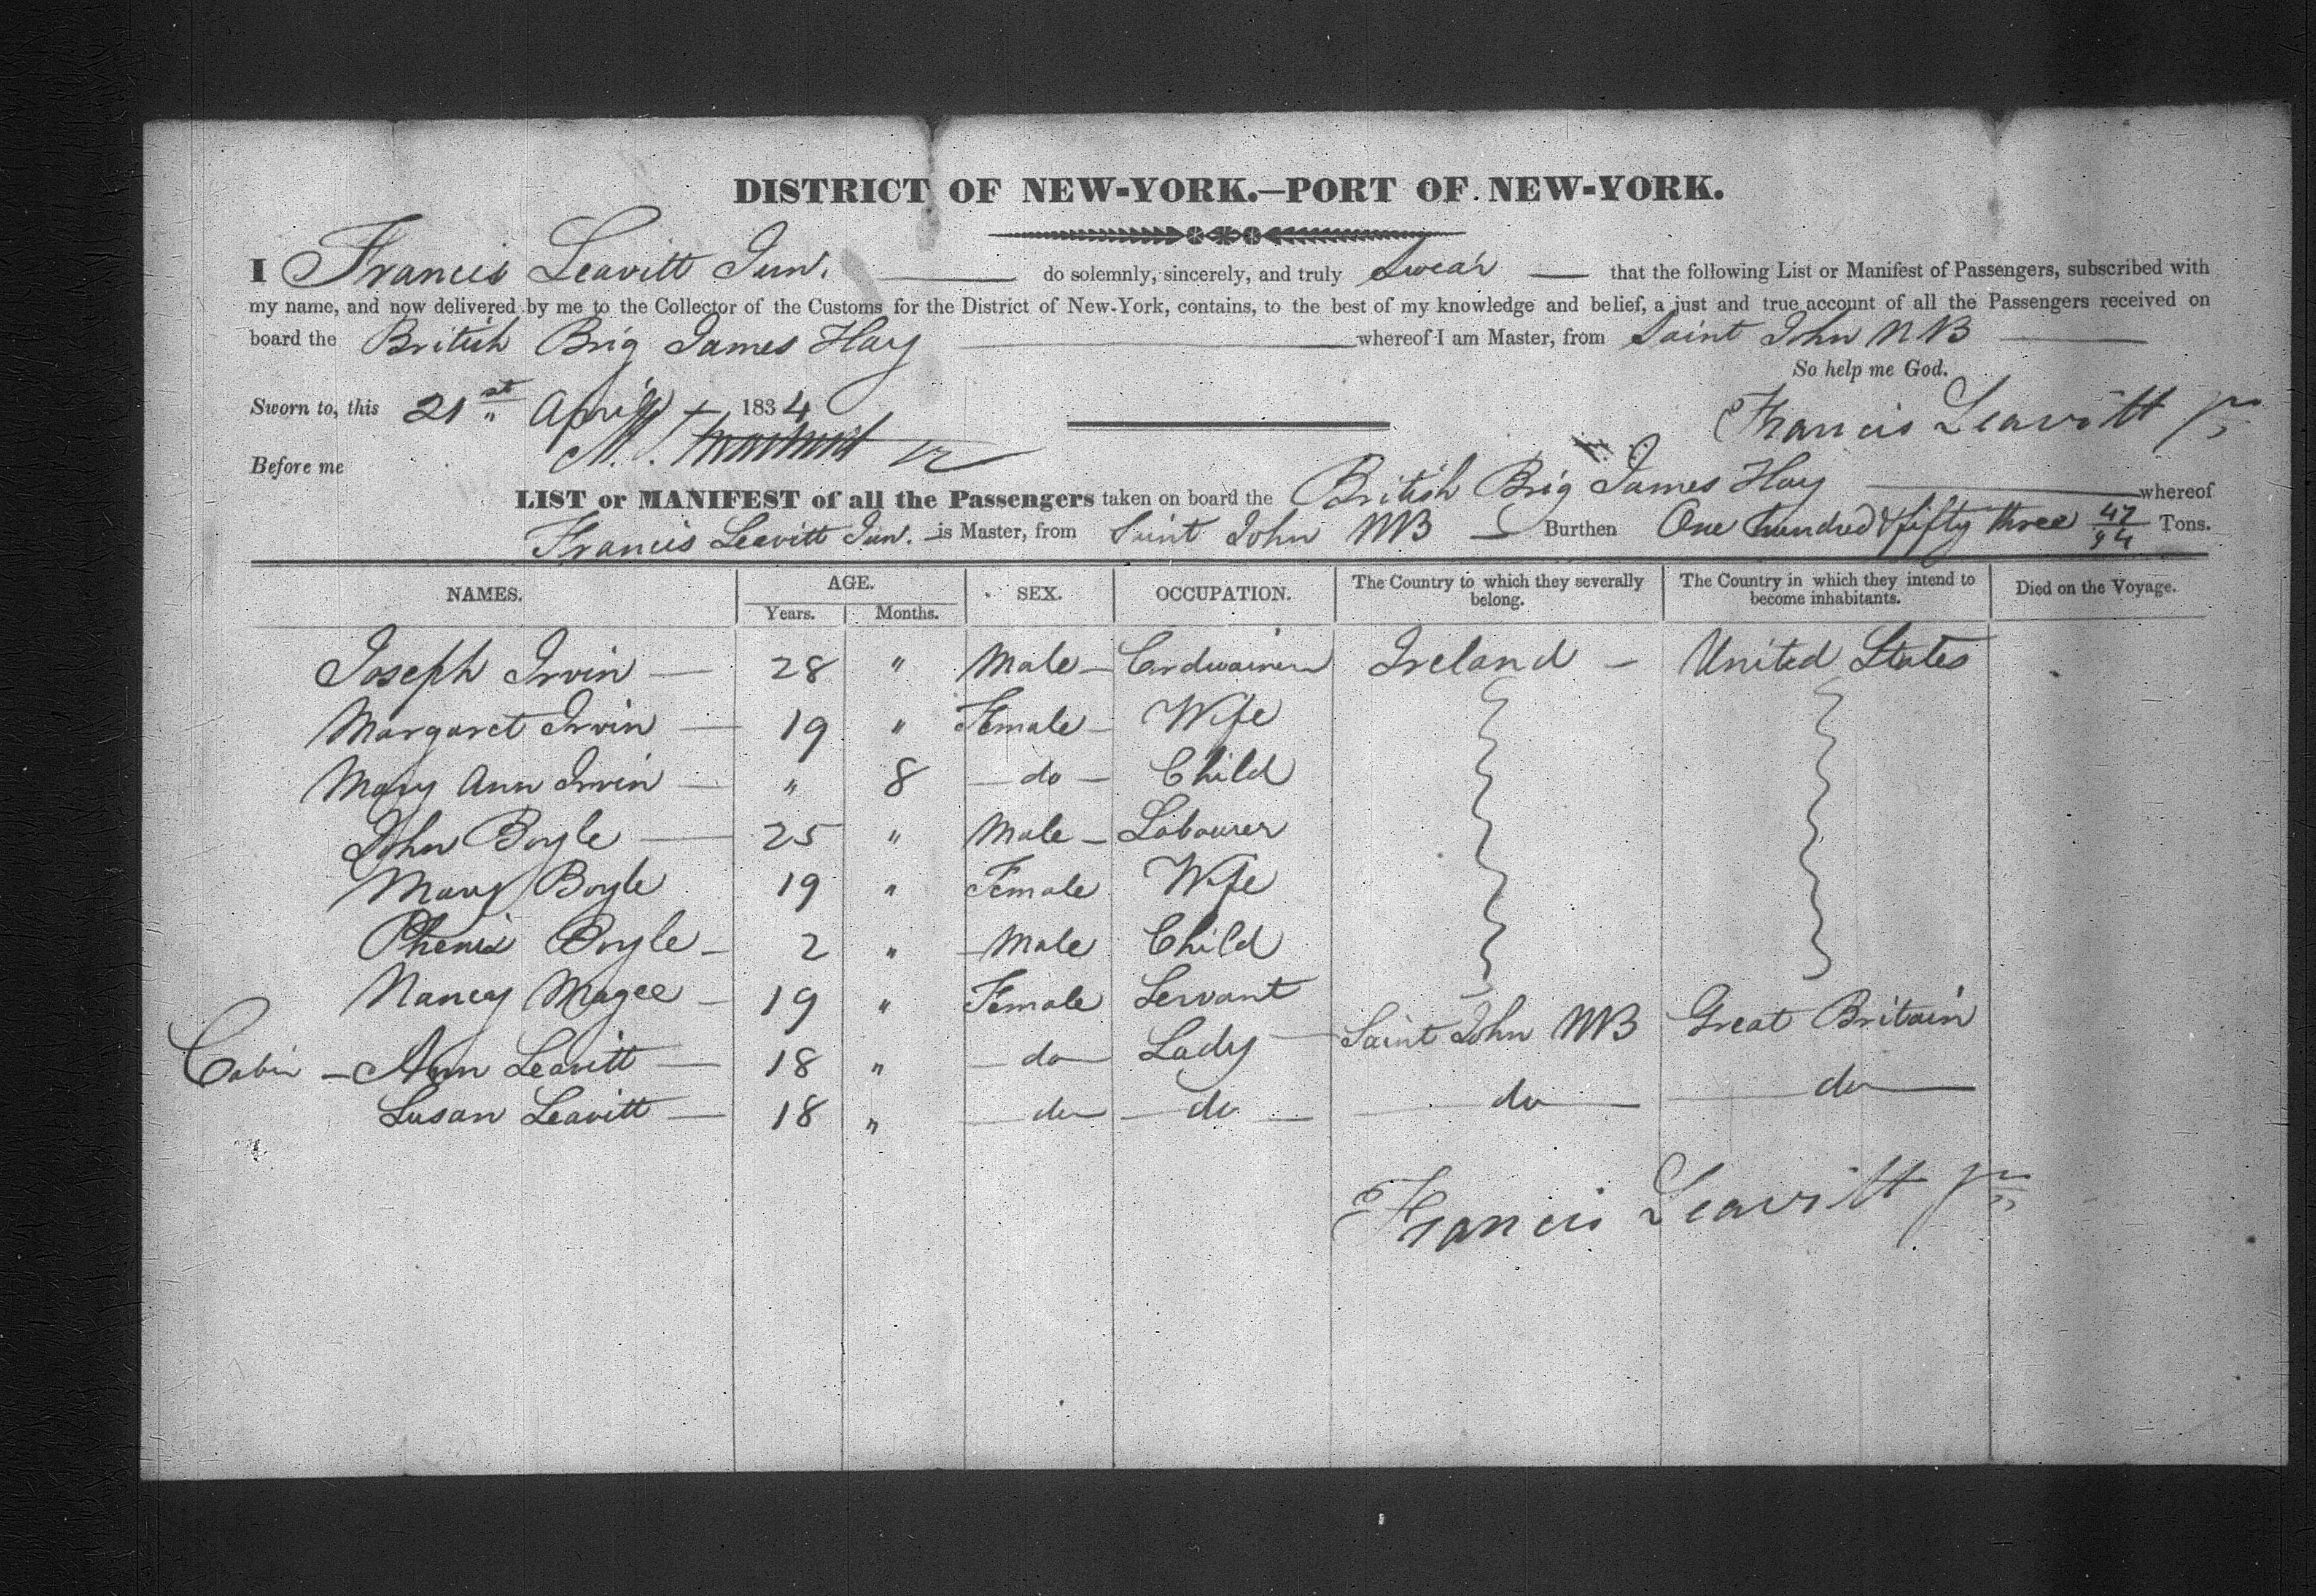 DISTRICT OF NEW-YORK.—PORT OF NEW-YORK.
I Francis Leavitt Jun. do solemnly, sincerely, and truly Swear that the following List or Manifest of Passengers, subscribed with
my name, and now delivered by me to the Collector of the Customs for the District of New-York, contains, to the best of my knowledge and belief, a just and true account of all the Passengers received on
board the British Brig James Hay whereof I am Master, from Saint John NB
So help me God.
Sworn to, this 21st April 1834
Francis Leavitt Jr
Before me
LIST or MANIFEST of all the Passengers taken on board the British Brig James Hay whereof
Francis Leavitt Jun. is Master, from Saint John NB Burthen One hundred & fifty three 47/94 Tons.
NAMES. AGE. SEX. OCCUPATION. The Country to which they severally belong. The Country in which they intend to become inhabitants. Died on the Voyage.
Years. Months.
Joseph Irvin — 28 " Male — Cordwainer Ireland — United States
Margaret Irvin — 19 " Female — Wife
Mary Ann Irvin — " 8 — do — Child
John Boyle — 25 " Male — Labourer
Mary Boyle 19 " Female Wife
Phenix Boyle — 2 " — Male Child
Nancy Magee — 19 " Female Servant
Cabin — Ann Leavitt — 18 " — do — Lady — Saint John NB Great Britain
Susan Leavitt — 18 " — do — do — do — do —
Francis Leavitt Jr